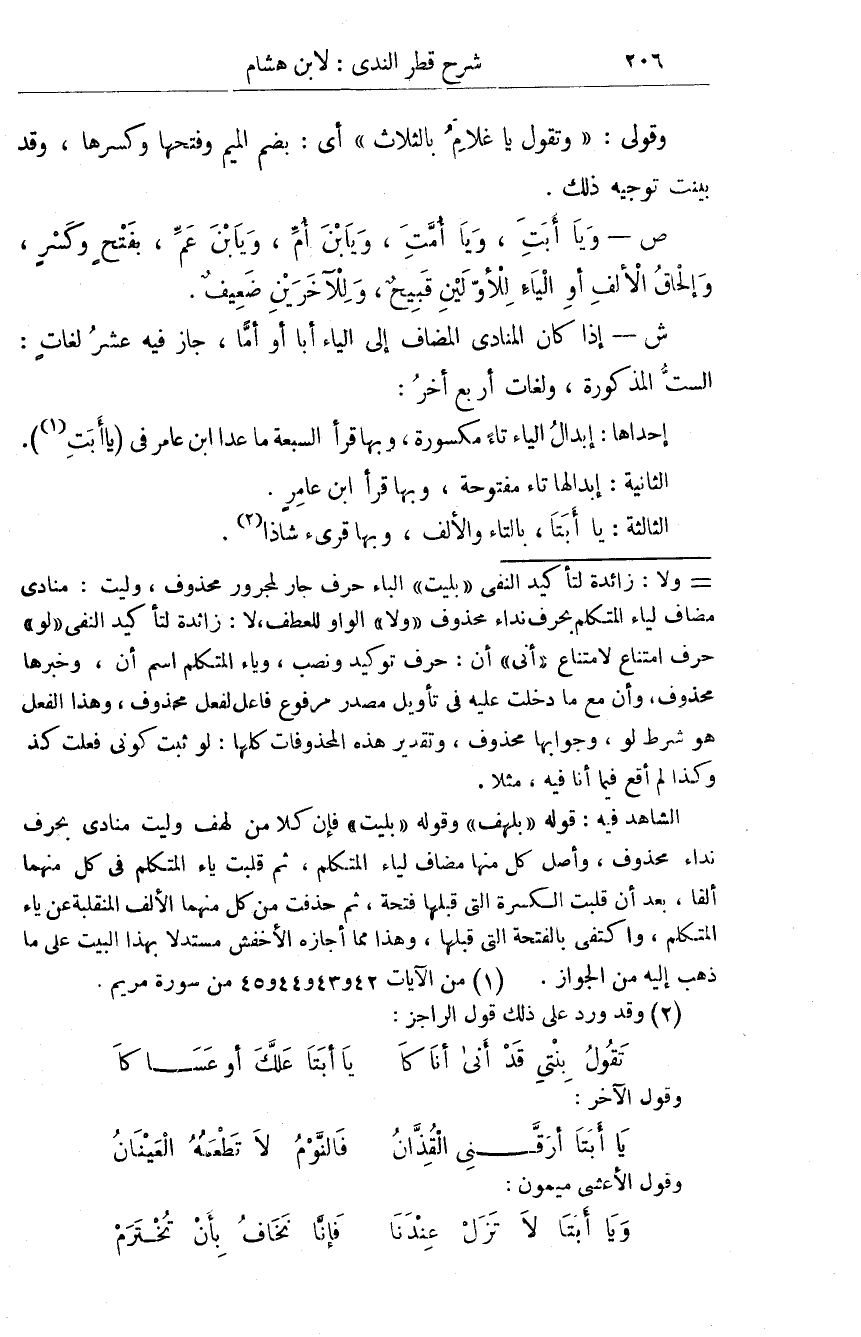 ٢٠٦ شرح قطر الندى : لابن هشام
وقولى : « وتقول يا غلامُِ بالثلاث » أى : بضم الميم وفتحها وكسرها ، وقد
بينت توجيه ذلك .
ص — وَيَا أَبَتَِ ، وَيَا أُمَّتَِ ، وَيَابْنَ أُمَِّ ، وَيَابْنَ عَمَِّ ، بِفَتْحٍ وَكَسْرٍ ،
وَإلحَاقُ الْألفِ أوِ الْيَاءِ لِلْأوّلَيْنِ قَبِيحٌ ، وَلِلْآخَرَيْنِ ضَعِيفٌ .
ش — إذا كان المنادى المضاف إلى الياء أبا أو أمًّا ، جاز فيه عشرُ لغاتٍ :
الستُّ المذكورة ، ولغات أربع أخرُ :
إحداها : إبدالُ الياء تاءً مكسورة ، وبها قرأ السبعة ما عدا ابن عامر فى (ياأَبَتِ(١)).
الثانية : إبدالها تاء مفتوحة ، وبها قرأ ابن عامِرٍ .
الثالثة : يا أَبَتَا ، بالتاء والألف ، وبها قرىء شاذا(٢) .
= ولا : زائدة لتأكيد النفى «بليت» الباء حرف جار لمجرور محذوف ، وليت : منادى
مضاف لياء المتكلم بحرف نداء محذوف «ولا» الواو للعطف،لا : زائدة لتأكيد النفى «لو»
حرف امتناع لامتناع «أنى» أن : حرف توكيد ونصب ، وياء المتكلم اسم أن ، وخبرها
محذوف، وأن مع ما دخلت عليه فى تأويل مصدر مرفوع فاعل لفعل محذوف ، وهذا الفعل
هو شرط لو ، وجوابها محذوف ، وتقدير هذه المحذوفات كلها : لو ثبت كونى فعلت كذ
وكذا لم أقع فيما أنا فيه ، مثلا .
الشاهد فيه : قوله «بلهف» وقوله «بليت» فإن كلا من لهف وليت منادى بحرف
نداء محذوف ، وأصل كل منها مضاف لياء المتكلم ، ثم قلبت ياء المتكلم فى كل منهما
ألفا ، بعد أن قلبت الكسرة التى قبلها فتحة ، ثم حذفت من كل منهما الألف المنقلبة عن ياء
المتكلم ، واكتفى بالفتحة التى قبلها ، وهذا مما أجازه الأخفش مستدلا بهذا البيت على ما
ذهب إليه من الجواز . (١) من الآيات ٤٢و٤٣و٤٤و٤٥ من سورة مريم .
(٢) وقد ورد على ذلك قول الراجز :
تَقُولُ بِنْتِي قَدْ أَنىٰ أنَاكَا يَا أبَتَا عَلَّكَ أو عَسَــاكَا
وقول الآخر :
يَا أَبَتَا أرَقَّــنِى الْقُذَّانُ فَالنَّوْمُ لاَ تَطْعَمُهُ الْعَيْنَانُ
وقول الأعشى ميمون :
وَيَا أَبَتَا لاَ تَزَلْ عِنْدَنَا فَإنَّا نَخَافُ بِأَنْ تُخْتَرَمْ